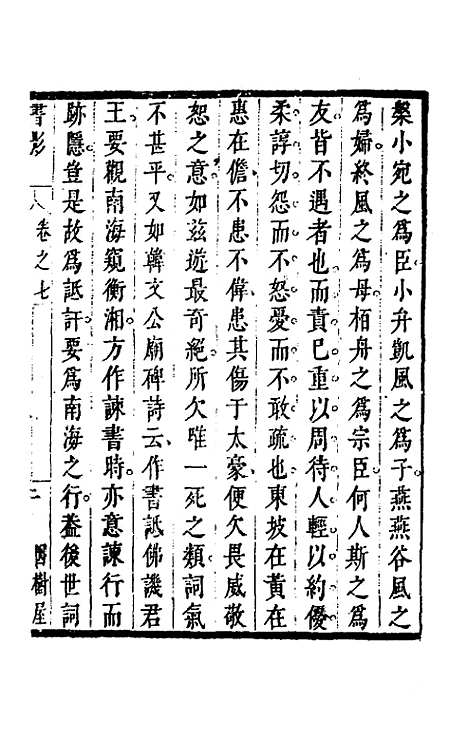 槃小宛之為臣小弁凱風之為子燕燕谷風之
為婦終風之為母栢舟之為宗臣何人斯之為
友皆不遇者也而責巳重以周待人輕以約優
柔諄切怨而不怒愛而不敢疏也東坡在黃在
惠在儋不患不偉患其傷于太豪便欠畏威敬
恕之意如茲遊最奇絕所欠唯一死之類詞氣
不甚平又如韓文公廟碑詩云作書詆佛譏君
王要觀南海窺衡湘方作諫書時亦意諫行而
跡隱豈是故為詆訐要為南海之行葢後世詞
書影 卷之七 二 樹屋